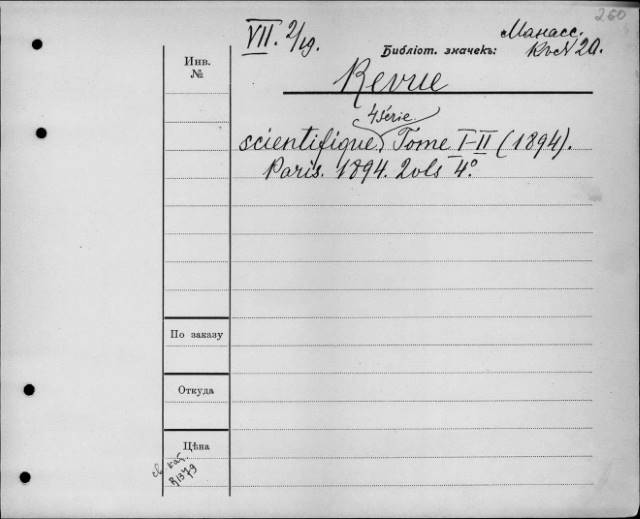 260
VII. 2/19.
Библіот. значекъ:
Манасс.
20.
Инв.
№
Revue
4 série.
scientifique. Tome I-II (1894).
Paris. 1894. 2 vols 4°.
По заказу
Откуда
Цѣна